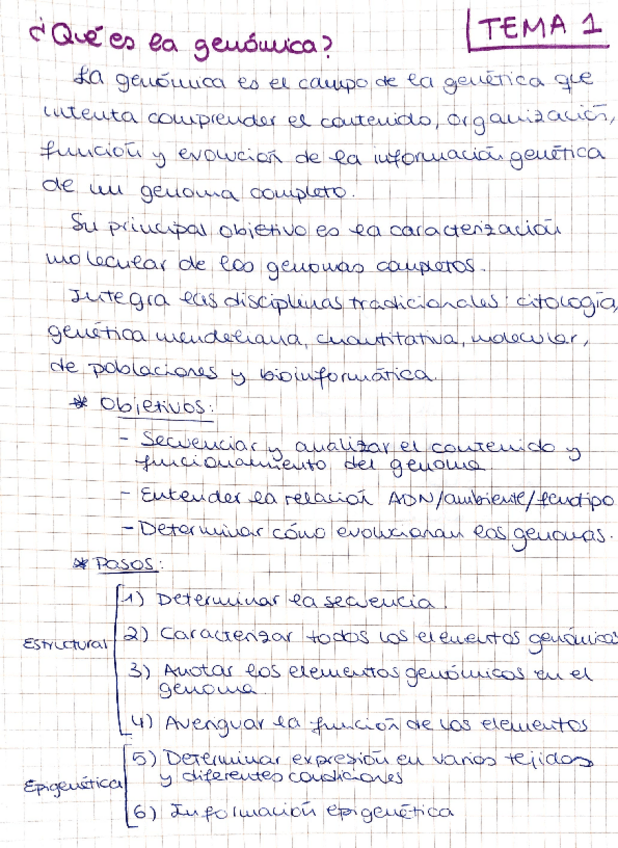 ¿Qué es la genómica?
TEMA 1
La genómica es el campo de la genética que
intenta comprender el contenido, organización,
función y evolución de la información genética
de un genoma completo.
Su principal objetivo es la caracterización
molecular de los genomas completos.
Integra las disciplinas tradicionales: citología,
genética mendeliana, cuantitativa, molecular,
de poblaciones y bioinformática.
* Objetivos:
- Secuenciar y analizar el contenido y
funcionamiento del genoma
- Entender la relación ADN/ambiente/fenotipo
- Determinar cómo evolucionan los genomas.
* Pasos:
1) Determinar la secuencia.
Estructural 2) Caracterizar todos los elementos genómicos
3) Anotar los elementos genómicos en el
genoma.
4) Averiguar la función de los elementos
5) Determinar expresión en varios tejidos
y diferentes condiciones
Epigenética
6) Información epigenética